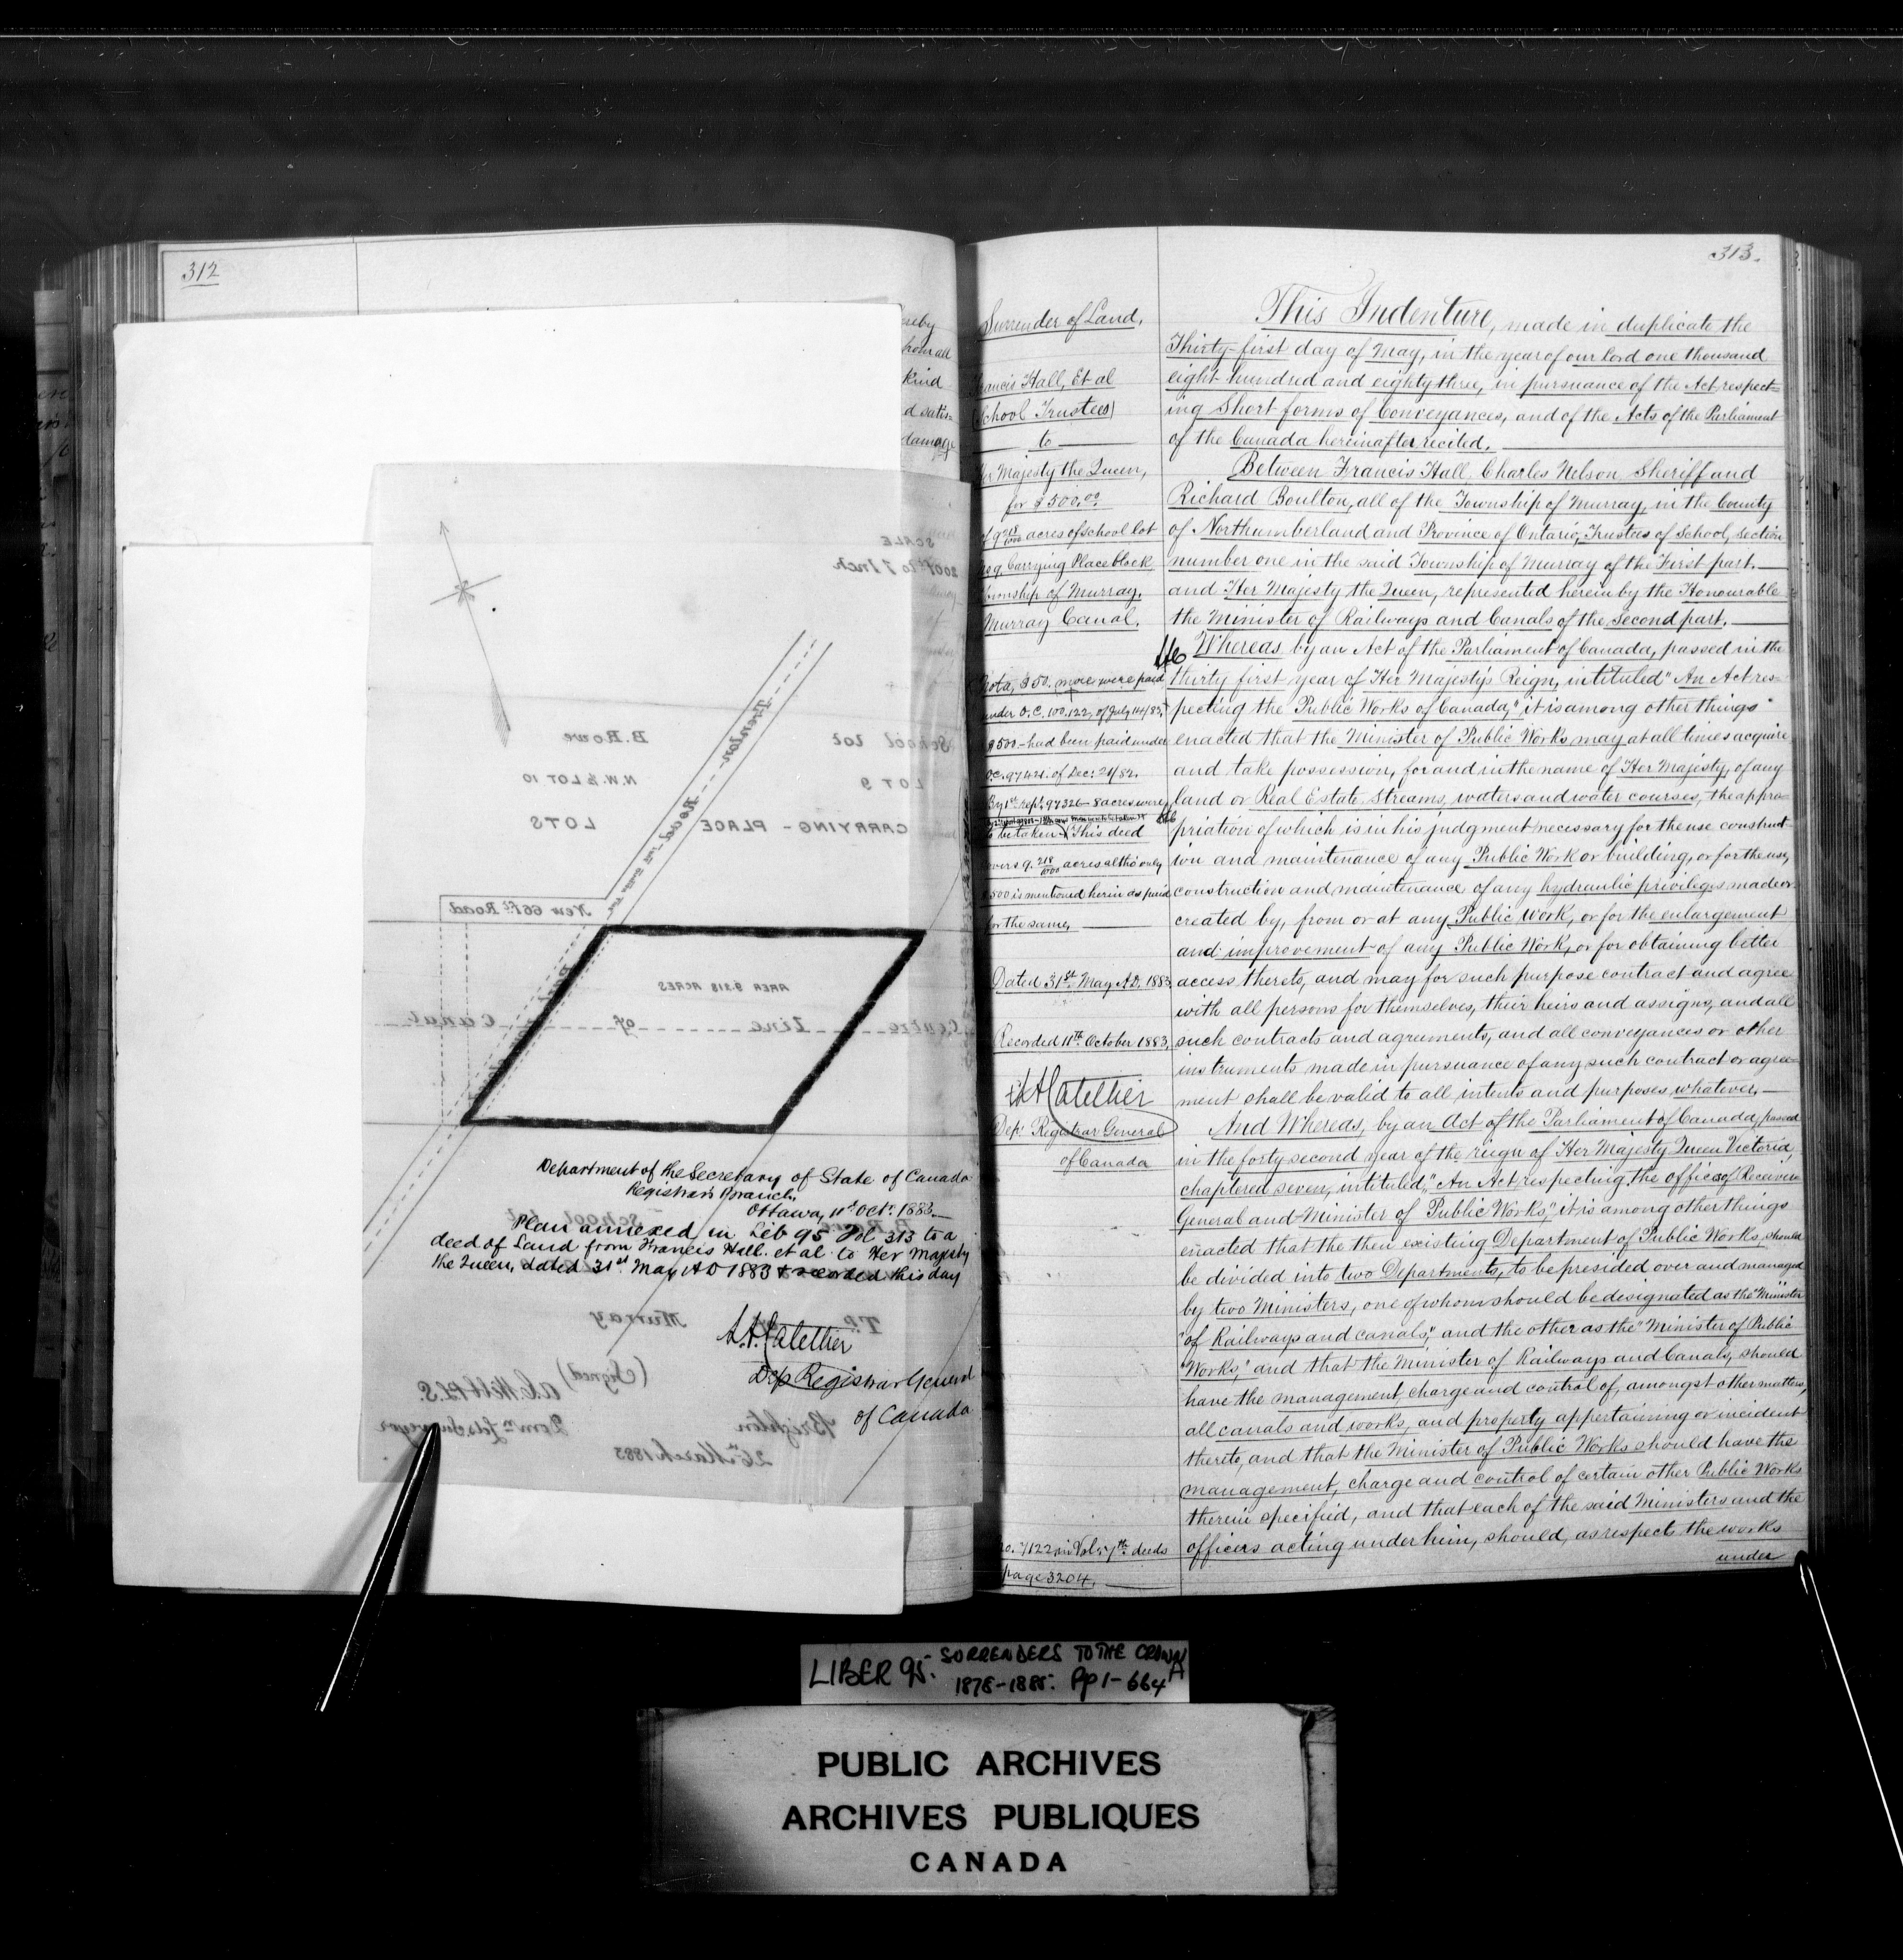 312
hereby
from all
kind
d satis=
damage
SCALE
200 ft to 1 Inch
Trenton
Road
B. Rowe
School lot
N.W. ½ LOT 10
LOT 9
CARRYING - PLACE
LOTS
New 66 ft Road
AREA 9.218 ACRES
Centre Line of Canal
School lot
B. Rowe
Department of the Secretary of State of Canada
Registrar's Branch,
Ottawa, 11th Oct. 1883.
Plan annexed in Lib 95 Fol. 313 to a
deed of Land from Francis Hall. et al to Her Majesty
the Queen, dated 31st May AD 1883 & recorded this day
Tp. of Murray
L.A. Catellier
Dep Registrar General
of Canada
(Signed)
Brighton
26th March 1883
313.
Surrender of Land,
Francis Hall, Et al
(School Trustees)
to
Her Majesty the Queen,
for $500.00
of 9 218/1000 acres of school lot
no 9, Carrying Place block
Township of Murray.
Murray Canal.
Nota, $50. more were paid
under O.C. 100.122, of July 14/83,
$500 - had been paid under
O.C. 97421. of Dec: 21/82.
By 1st rept. 97326 - 8 acres were
to be taken (This deed
covers 9. 218/1000 acres altho' only
$500 is mentioned herein as paid
for the same,
Dated 31st May A.D. 1883,
Recorded 11th October 1883,
L.A. Catellier
Dep. Registrar General
of Canada
No. 7122 in Vol: 7th deeds
page 3204.
This Indenture, made in duplicate the
Thirty-first day of May, in the year of our lord one thousand
eight hundred and eighty three, in pursuance of the Act respect=
ing Short forms of Conveyances, and of the Acts of the Parliament
of the Canada hereinafter recited.
Between Francis Hall, Charles Nelson Sheriff and
Richard Boulton, all of the Township of Murray, in the County
of Northumberland and Province of Ontario, Trustees of School, section
number one in the said Township of Murray of the First part.
and Her Majesty the Queen, represented herein by the Honourable
the Minister of Railways and Canals of the Second part.
Whereas by an Act of the Parliament of Canada, passed in the
thirty first year of Her Majesty's Reign, intituled "An Act res-
pecting the Public Works of Canada," it is among other things
enacted that the Minister of Public Works, may at all times acquire
and take possession, for and in the name of Her Majesty, of any
land or Real Estate, Streams, waters and water courses, the appro=
priation of which is in his judgment necessary for the use, construct-
ion and maintenance of any Public Work or building, or for the use,
construction and maintenance of any hydraulic privileges made or
created by, from or at any Public Work, or for the enlargement
and improvement of any Public Work, or for obtaining better
access thereto, and may for such purpose contract and agree
with all persons for themselves, their heirs and assigns, and all
such contracts and agreements, and all conveyances or other
instruments made in pursuance of any such contract or agree=
ment shall be valid to all intents and purposes, whatever,
And Whereas, by an Act of the Parliament of Canada, passed
in the forty second year of the reign of Her Majesty Queen Victoria,
chaptered seven, intituled, "An Act respecting the offices of Receiver
General and Minister of Public Works," it is among other things
enacted that the then existing Department of Public Works, should
be divided into two Departments, to be presided over and managed
by two Ministers, one of whom should be designated as the "Minister
"of Railways and Canals," and the other as the "Minister of Public
"Works," and that the Minister of Railways and Canals, should
have the management, charge and control of, amongst other matters,
all canals and works, and property appertaining or incident
thereto, and that the Minister of Public Works should have the
management, charge and control of certain other Public Works
therein specified, and that each of the said Ministers and the
officers acting under him, should, as respects the works
under
LIBER 95. SURRENDERS TO THE CROWN
1878-1885. Pp 1-664A
PUBLIC ARCHIVES
ARCHIVES PUBLIQUES
CANADA